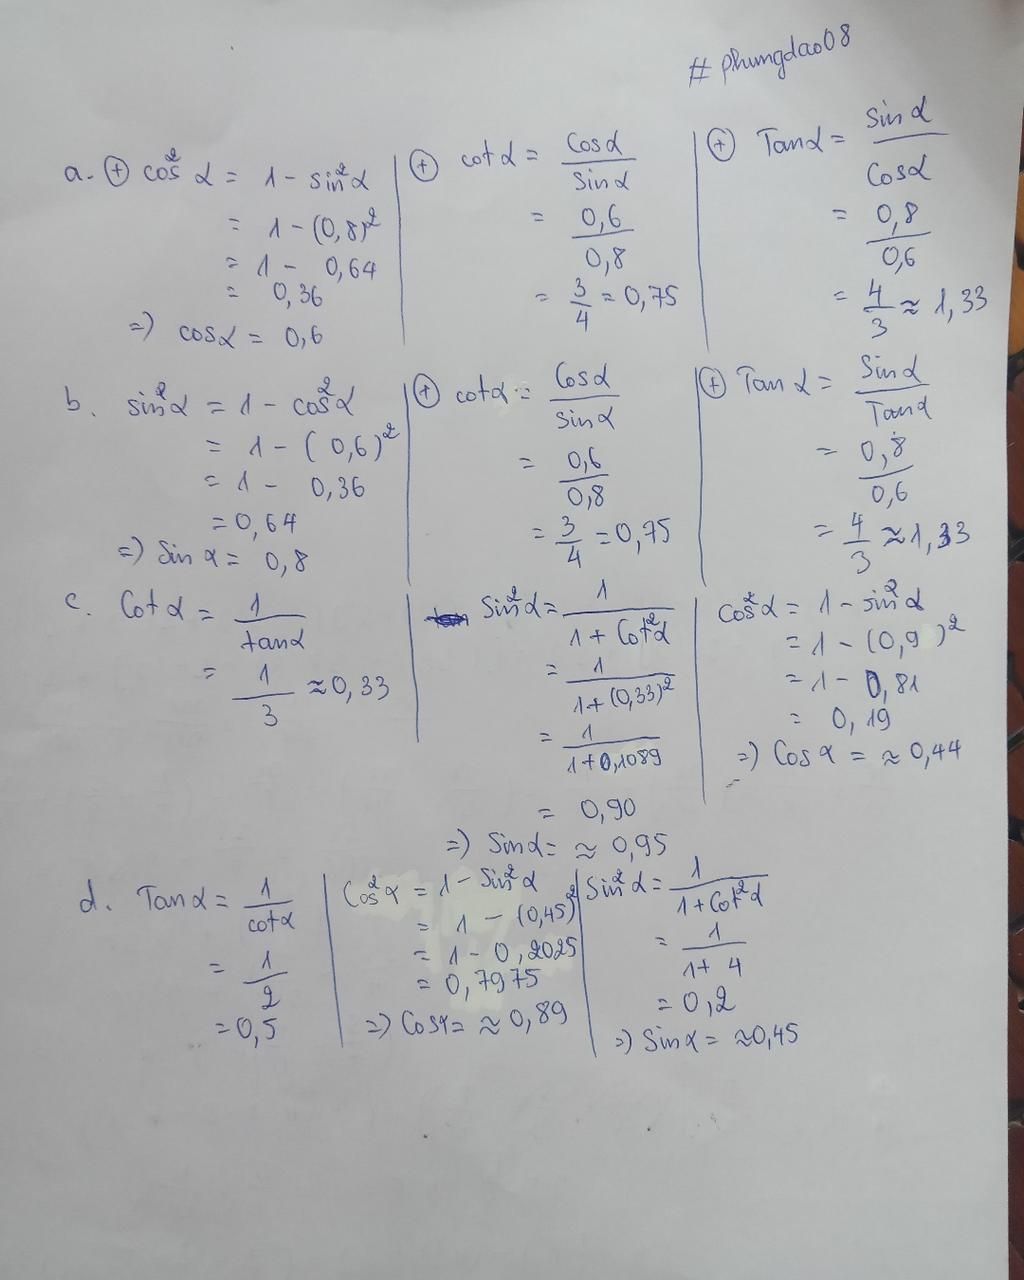 # phungdao08
a. ⊕ cos²α = 1 - sin²α
= 1 - (0,8)²
= 1 - 0,64
= 0,36
=) cosα = 0,6
⊕ cotα = Cosα / Sinα
= 0,6 / 0,8
= 3/4 = 0,75
⊕ Tanα = Sinα / Cosα
= 0,8 / 0,6
= 4/3 ≈ 1,33
b. sin²α = 1 - cos²α
= 1 - (0,6)²
= 1 - 0,36
= 0,64
=) Sin α = 0,8
⊕ cotα = Cosα / Sinα
= 0,6 / 0,8
= 3/4 = 0,75
⊕ Tan α = Sinα / Tanα
= 0,8 / 0,6
= 4/3 ≈ 1,33
c. Cot α = 1 / tanα
= 1/3 ≈ 0,33
Sin²α = 1 / 1 + Cot²α
= 1 / 1+(0,33)²
= 1 / 1+0,1089
= 0,90
=) Sinα = ≈ 0,95
Cos²α = 1 - sin²α
= 1 - (0,9)²
= 1 - 0,81
= 0,19
=) Cos α = ≈ 0,44
d. Tanα = 1 / cotα
= 1/2
= 0,5
Cos²α = 1 - Sin²α
= 1 - (0,45)²
= 1 - 0,2025
= 0,7975
=) Cosα = ≈ 0,89
Sin²α = 1 / 1+Cot²α
= 1 / 1+ 4
= 0,2
=) Sinα = ≈0,45